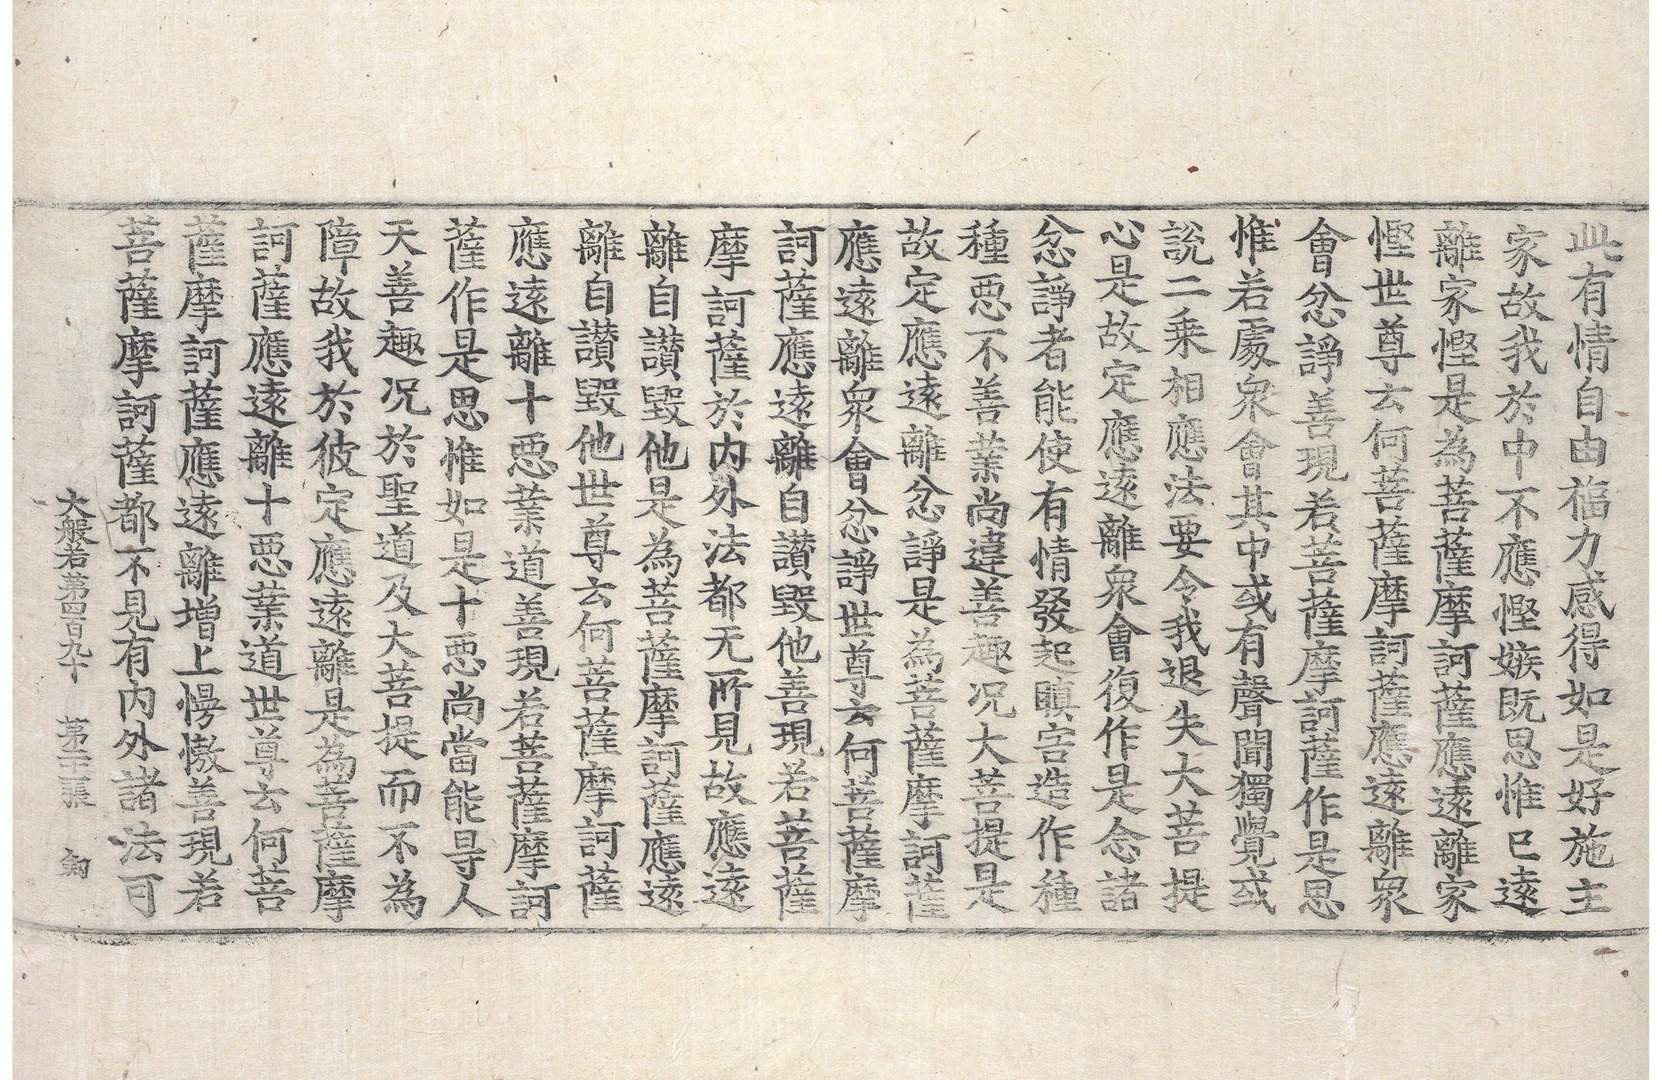 此有情自由福力感得如是好施主
家故我於中不應慳嫉既思惟已遠
離家慳是為菩薩摩訶薩應遠離家
慳世尊云何菩薩摩訶薩應遠離衆
會忿諍善現若菩薩摩訶薩作是思
惟若處衆會其中或有聲聞獨覺或
說二乗相應法要令我退失大菩提
心是故定應遠離衆會復作是念諸
忿諍者能使有情發起瞋害造作種
種惡不善業尚違善趣况大菩提是
故定應遠離忿諍是為菩薩摩訶薩
應遠離衆會忿諍世尊云何菩薩摩
訶薩應遠離自讃毀他善現若菩薩
摩訶薩於内外法都无所見故應遠
離自讃毀他是為菩薩摩訶薩應遠
離自讃毀他世尊云何菩薩摩訶薩
應遠離十惡業道善現若菩薩摩訶
薩作是思惟如是十惡尚當能㝵人
天善趣况於聖道及大菩提而不為
障故我於彼定應遠離是為菩薩摩
訶薩應遠離十惡業道世尊云何菩
薩摩訶薩應遠離增上慢慠善現若
菩薩摩訶薩都不見有内外諸法可
大般若第四百九十 第二十二張